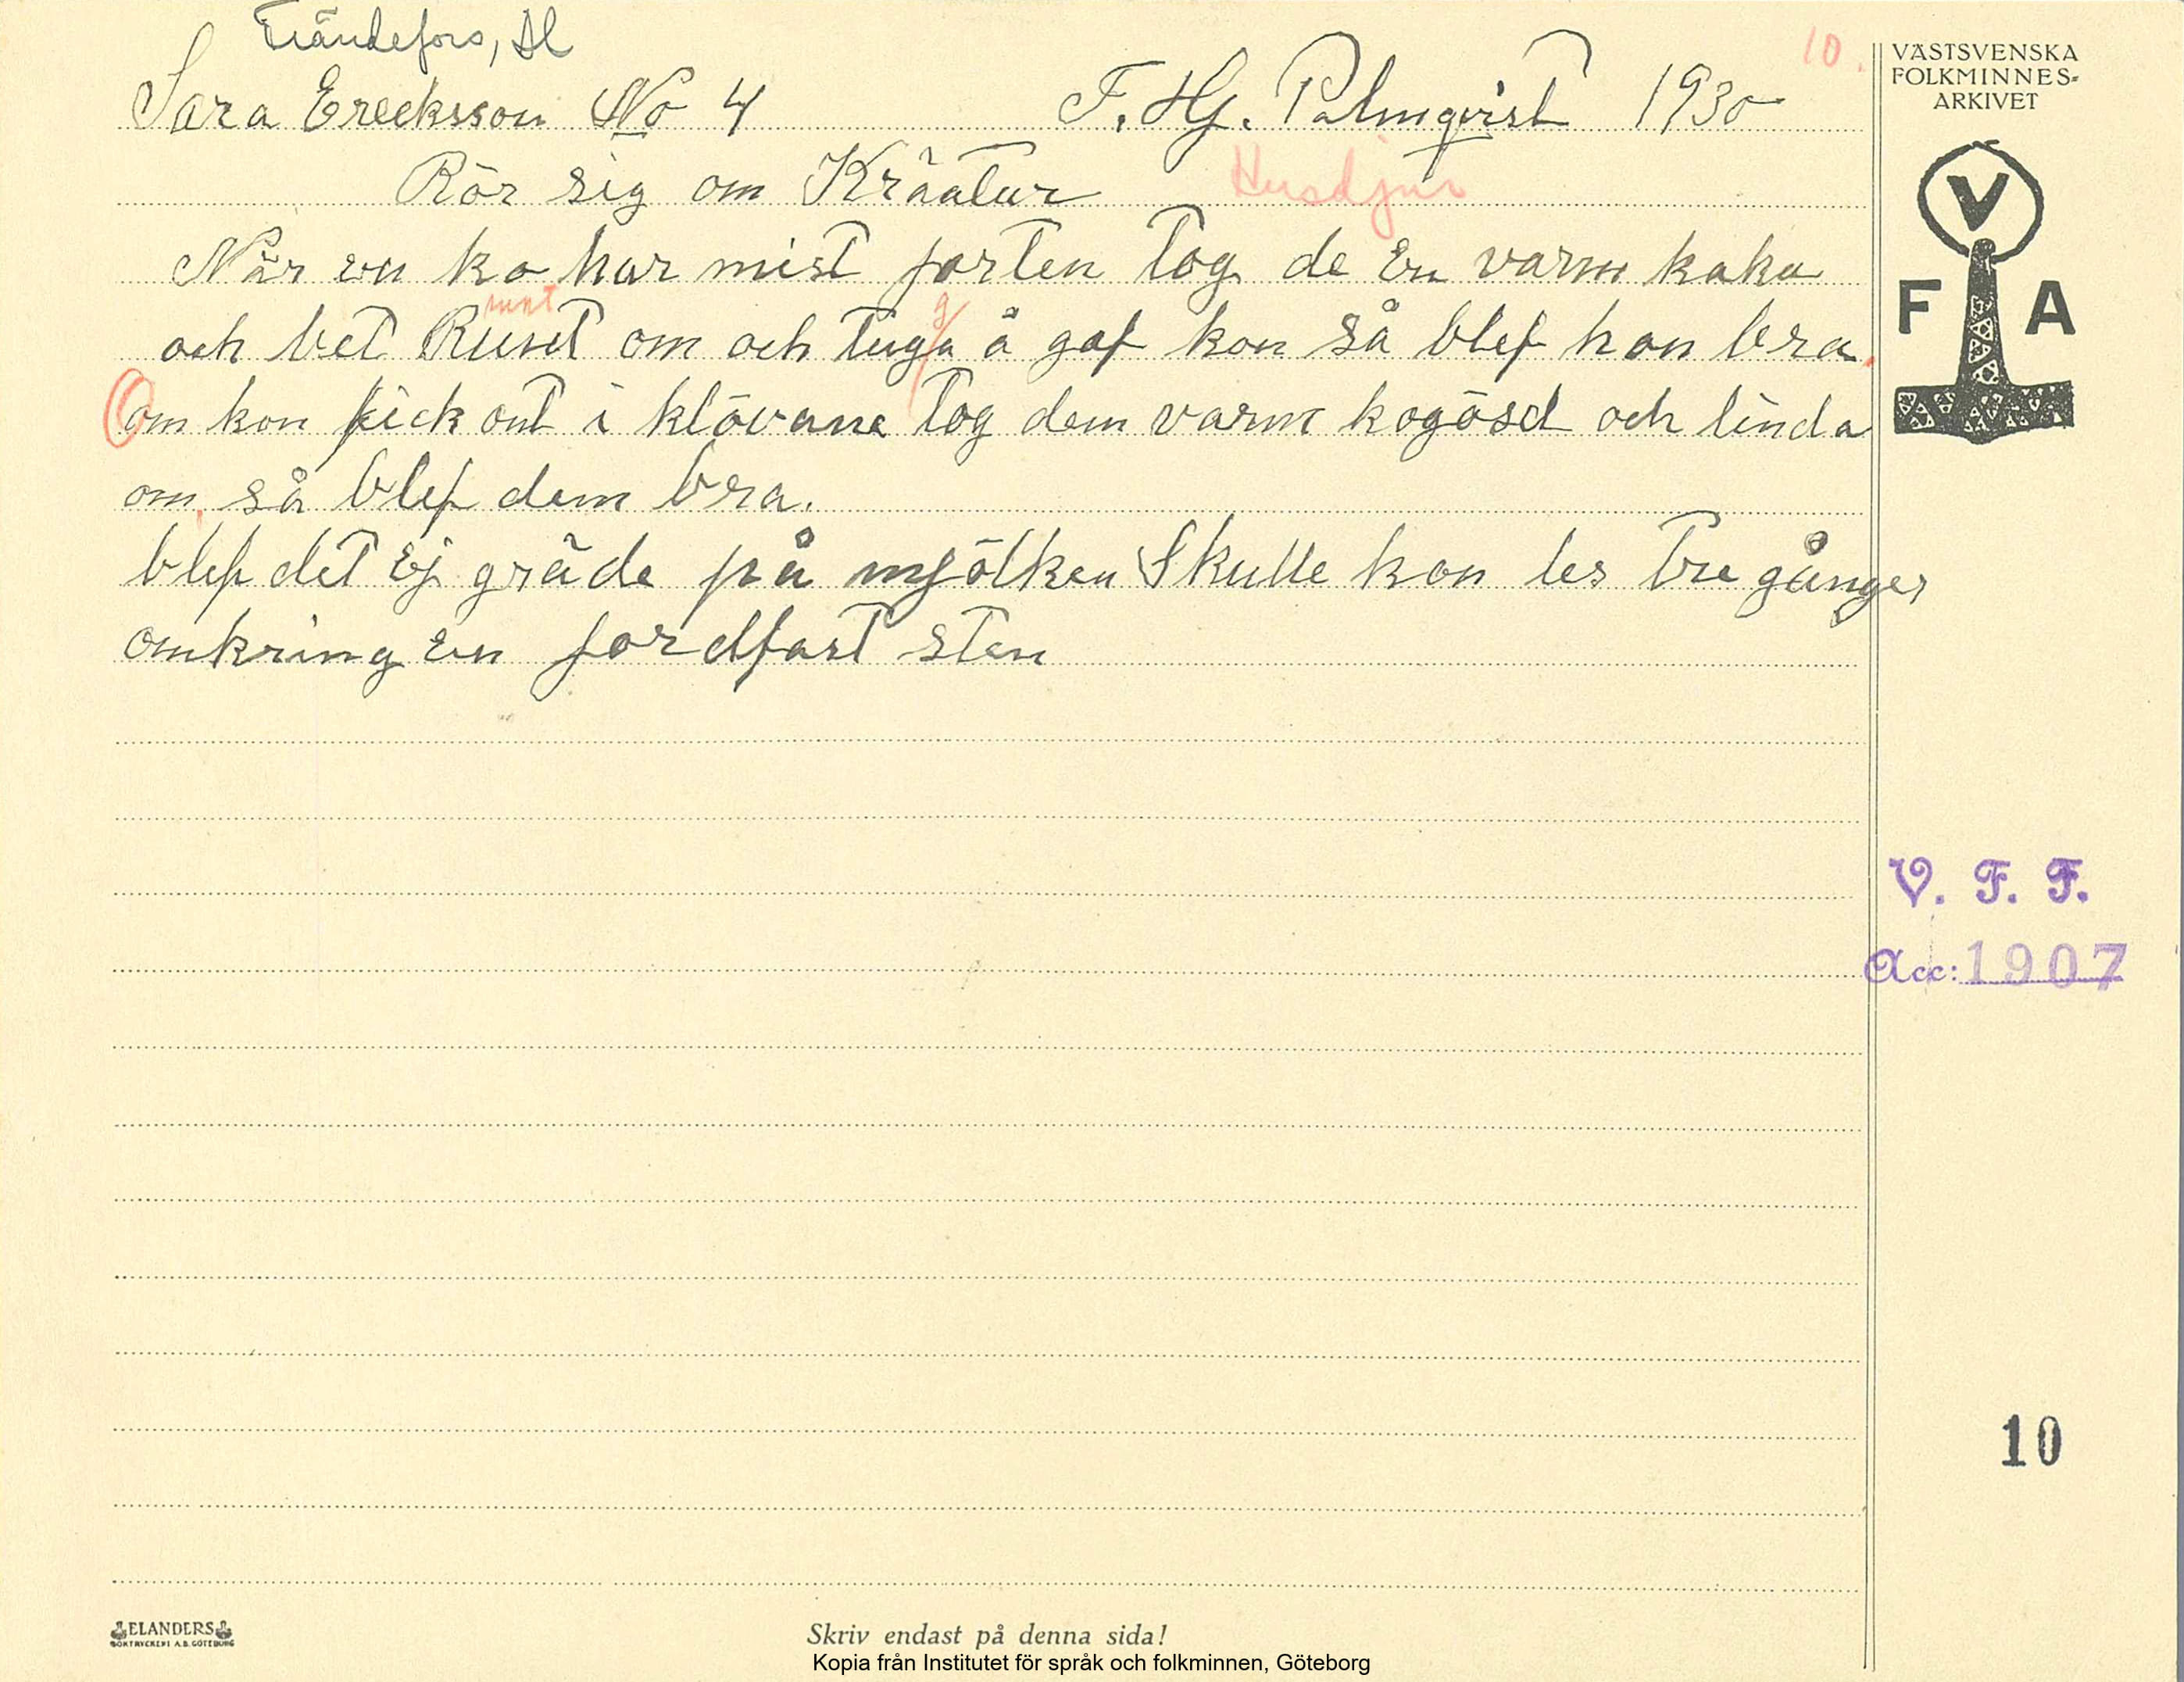 Trändefors, Dl
10.
Sara Erecksson No 4 F. Hj. Palmqvist 1930
Rör sig om Kräatur Husdjur
När en ko har mist jorten tog de En varm kaka
runt
och bet Runt om och tugga å gaf kon så blef hon bra.
Om kon fick ont i klövane tog dem varm kogösel och linda
om, så blef dem bra.
blef det Ej gräde på mjölken Skulle kon les tre gånger
omkring En jordfast sten
VÄSTSVENSKA
FOLKMINNES-
ARKIVET
V
F A
V. F. F.
Acc: 1907
10
ELANDERS
BOKTRYCKERI A.B. GÖTEBORG
Skriv endast på denna sida!
Kopia från Institutet för språk och folkminnen, Göteborg